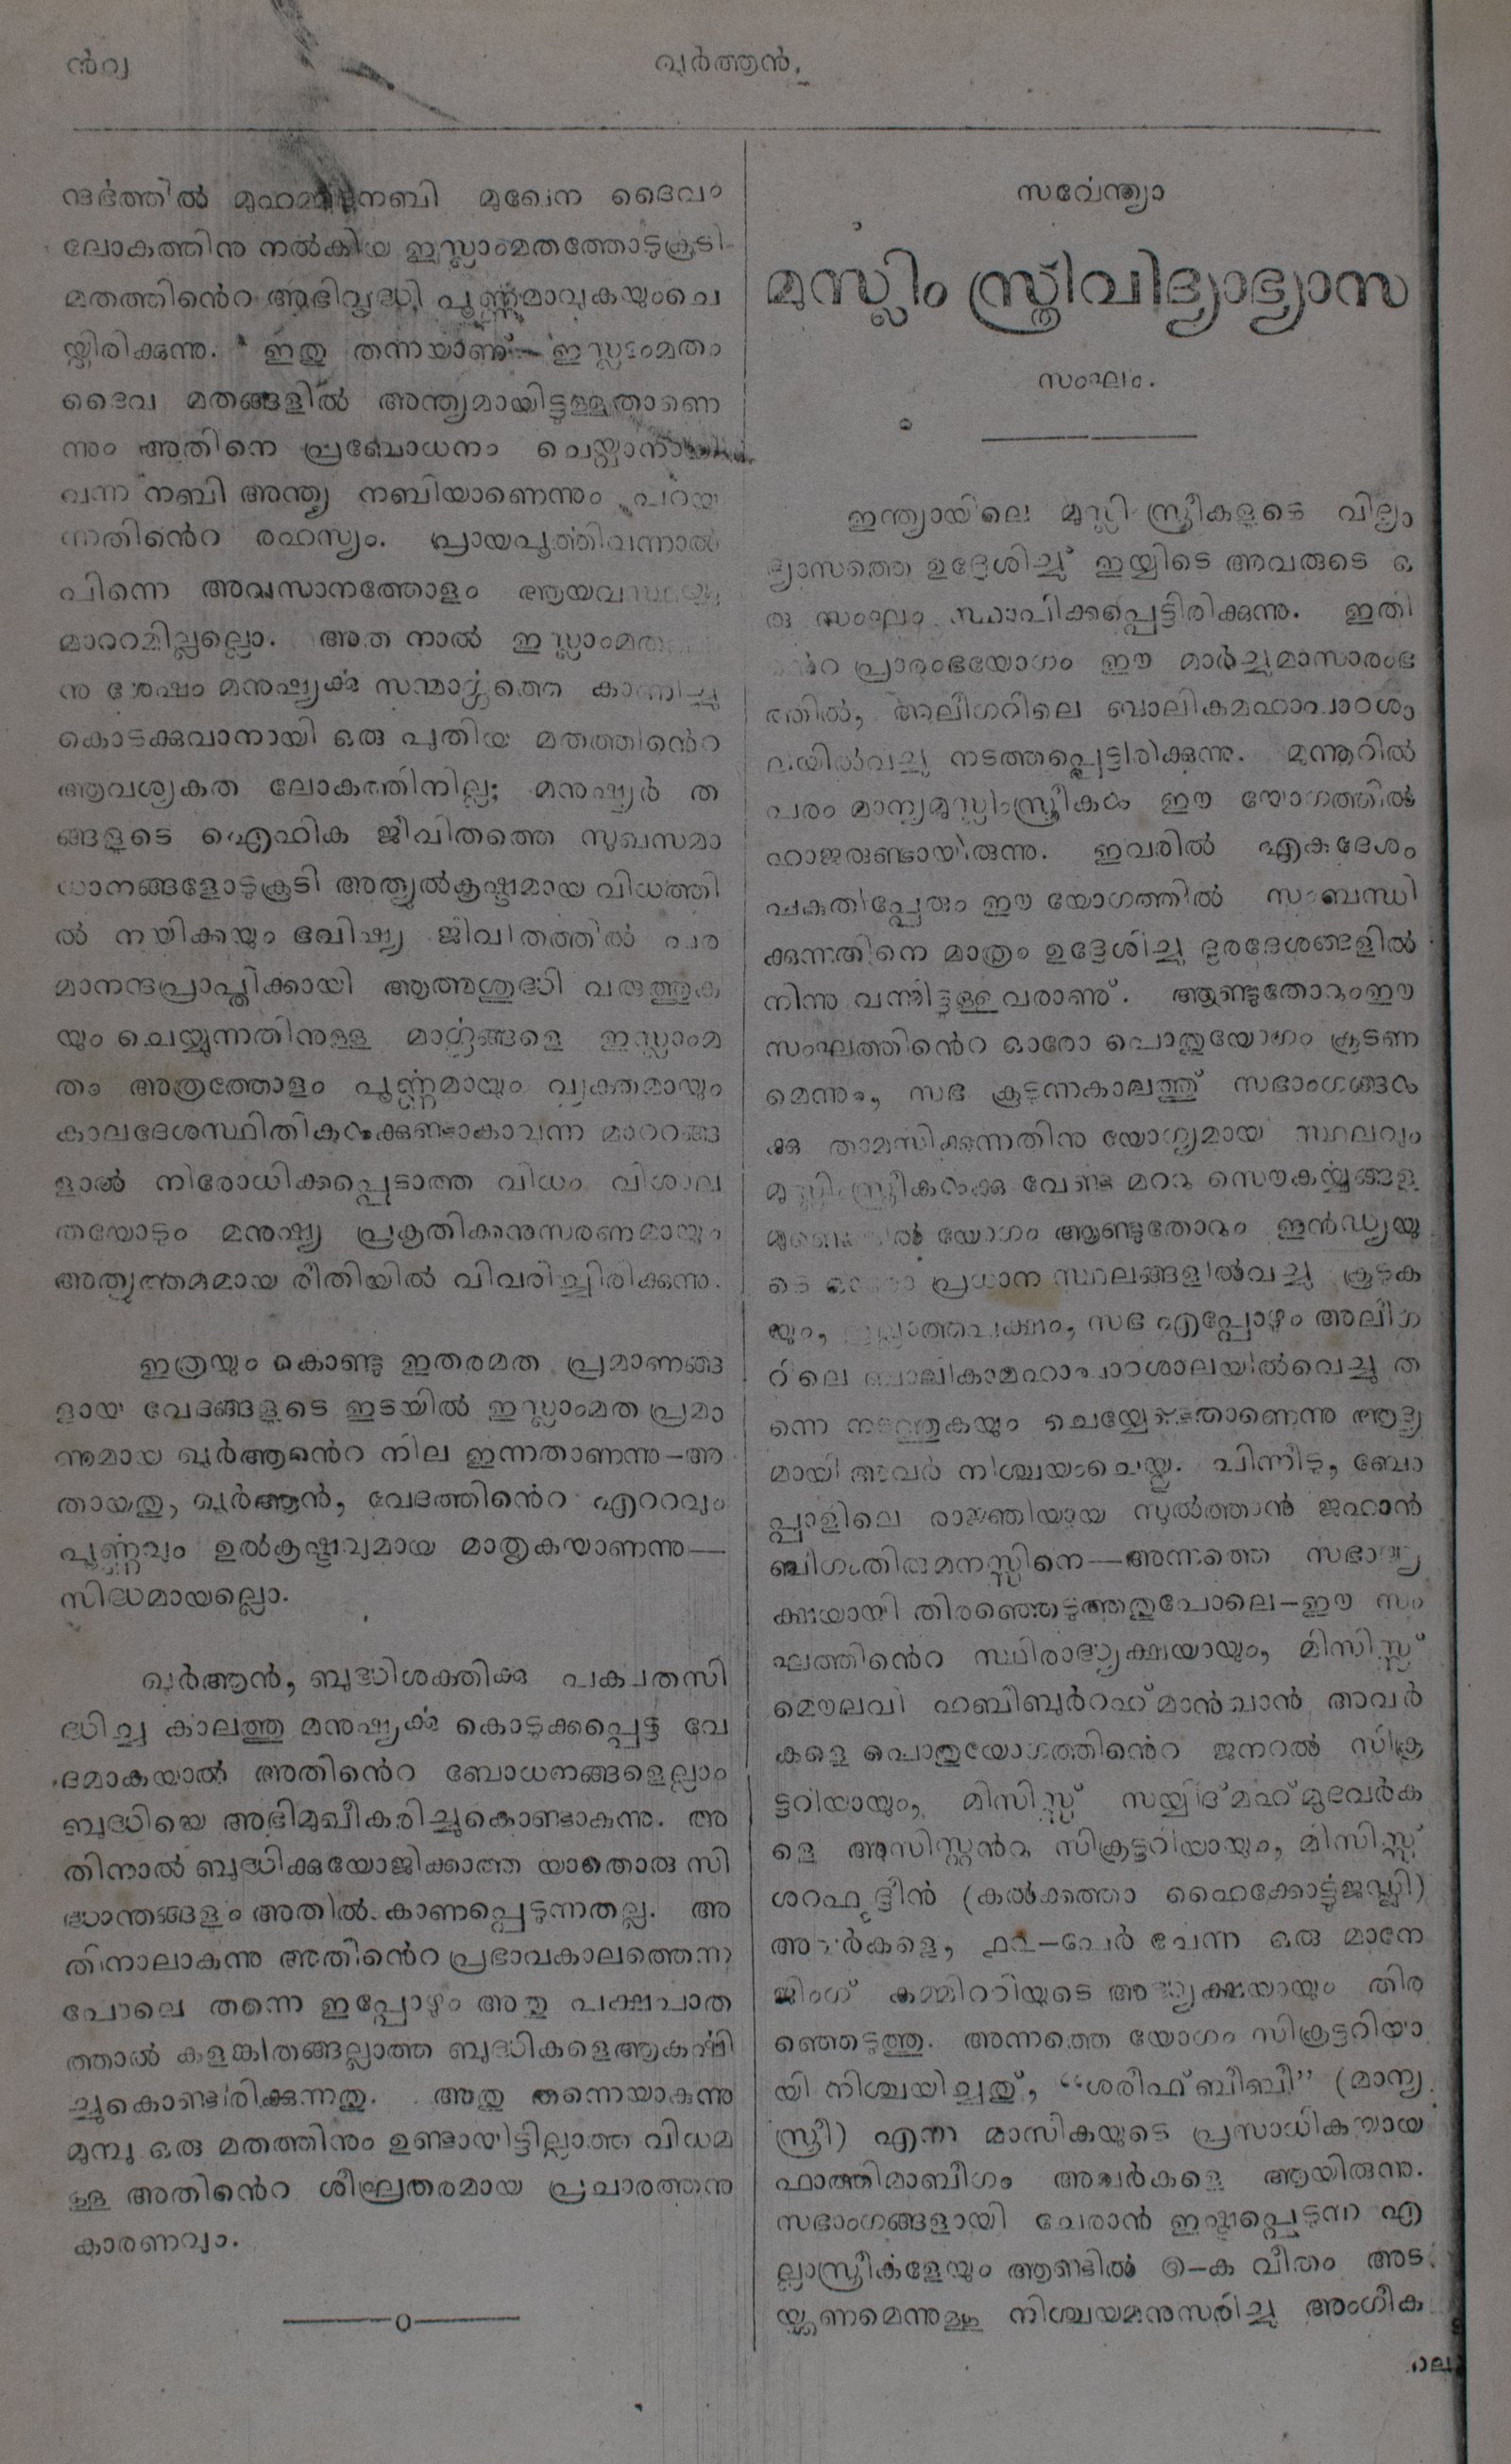 ഖുർആൻ.
ന്ദർഭത്തിൽ മുഹമ്മദുനബി മുഖേന ദൈവം
ലോകത്തിനു നൽകിയ ഇസ്ലാംമതത്തോടുകൂടി
മതത്തിൻെറ അഭിവൃദ്ധി പൂൎണ്ണമാവുകയുംചെ
യ്തിരിക്കുന്നു. ഇതു തന്നയാണു്— ഇസ്ലാംമതം
ദൈവ മതങ്ങളിൽ അന്ത്യമായിട്ടുള്ളതാണെ
ന്നും അതിനെ പ്രബോധനം ചെയ്വാനായി
വന്ന നബി അന്ത്യ നബിയാണെന്നും പറയു
ന്നതിൻെറ രഹസ്യം. പ്രായപൂൎത്തിവന്നാൽ
പിന്നെ അവസാനത്തോളം ആയവസ്ഥയ്ക്കു
മാററമില്ലല്ലൊ. അത നാൽ ഇസ്ലാംമത
നു ശേഷം മനുഷ്യൎക്കു സന്മാൎഗ്ഗത്തെ കാണിച്ചു
കൊടക്കുവാനായി ഒരു പുതിയ മതത്തിൻെറ
ആവശ്യകത ലോകത്തിനില്ല; മനുഷ്യർ ത
ങ്ങളുടെ ഐഹിക ജീവിതത്തെ സുഖസമാ
ധാനങ്ങളോടുകൂടി അത്യുൽകൃഷ്ടമായ വിധത്തി
ൽ നയിക്കയും ഭവിഷ്യ ജീവിതത്തിൽ പര
മാനന്ദപ്രാപ്തിക്കായി ആത്മശുദ്ധി വരുത്തുക
യും ചെയ്യുന്നതിനുള്ള മാൎഗ്ഗങ്ങളെ ഇസ്ലാംമ
തം അത്രത്തോളം പൂൎണ്ണമായും വ്യക്തമായും
കാലദേശസ്ഥിതികൾക്കുണ്ടാകാവുന്ന മാററങ്ങ
ളാൽ നിരോധിക്കപ്പെടാത്ത വിധം വിശാല
തയോടും മനുഷ്യ പ്രകൃതിക്കനുസരണമായും
അത്യുത്തമമായ രീതിയിൽ വിവരിച്ചിരിക്കുന്നു.
ഇത്രയും കൊണ്ടു ഇതരമത പ്രമാണങ്ങ
ളായ വേദങ്ങളുടെ ഇടയിൽ ഇസ്ലാംമത പ്രമാ
ണമായ ഖുർആൻെറ നില ഇന്നതാണന്നു—അ
തായതു, ഖുർആൻ, വേദത്തിൻെറ എററവും
പൂൎണ്ണവും ഉൽകൃഷ്ടവുമായ മാതൃകയാണന്നു—
സിദ്ധമായല്ലൊ.
ഖുർആൻ, ബുദ്ധിശക്തിക്കു പക്വതസി
ദ്ധിച്ച കാലത്തു മനുഷ്യൎക്കു കൊടുക്കപ്പെട്ട വേ
ദമാകയാൽ അതിൻെറ ബോധനങ്ങളെല്ലാം
ബുദ്ധിയെ അഭിമുഖീകരിച്ചുകൊണ്ടാകുന്നു. അ
തിനാൽ ബുദ്ധിക്കുയോജിക്കാത്ത യാതൊരു സി
ദ്ധാന്തങ്ങളും അതിൽ കാണപ്പെടുന്നതല്ല. അ
തിനാലാകുന്നു അതിൻെറ പ്രഭാവകാലത്തെന്ന
പോലെ തന്നെ ഇപ്പോഴും അതു പക്ഷപാത
ത്താൽ കളങ്കിതങ്ങല്ലാത്ത ബുദ്ധികളെആകൎഷി
ച്ചുകൊണ്ടിരിക്കുന്നതു. അതു തന്നെയാകുന്നു
മുമ്പു ഒരു മതത്തിനും ഉണ്ടായിട്ടില്ലാത്ത വിധമു
ള്ള അതിൻെറ ശീഘ്രതരമായ പ്രചാരത്തിനു
കാരണവും.
സൎവേന്ത്യാ
മുസ്ലിം സ്ത്രീവിദ്യാഭ്യാസ
സംഘം.
ഇന്ത്യായിലെ മുസ്ലിം സ്ത്രീകളുടെ വിദ്യാ
ഭ്യാസത്തെ ഉദ്ദേശിച്ചു് ഇയ്യിടെ അവരുടെ ഒ
രു സംഘം സ്ഥാപിക്കപ്പെട്ടിരിക്കുന്നു. ഇതി
ൻെറ പ്രാരംഭയോഗം ഈ മാർച്ചുമാസാരംഭ
ത്തിൽ, അലിഗറിലെ ബാലികമഹാപാഠശാ
ലയിൽവച്ചു നടത്തപ്പെട്ടിരിക്കുന്നു. മുന്നൂറിൽ
പരം മാന്യമുസ്ലിംസ്ത്രീകൾ ഈ യോഗത്തിൽ
ഹാജരുണ്ടായിരുന്നു. ഇവരിൽ ഏകദേശം
പകുതിപ്പേരും ഈ യോഗത്തിൽ സംബന്ധി
ക്കുന്നതിനെ മാത്രം ഉദ്ദേശിച്ചു ദൂരദേശങ്ങളിൽ
നിന്നു വന്നിട്ടുള്ളവരാണു്. ആണ്ടുതോറുംഈ
സംഘത്തിൻെറ ഓരോ പൊതുയോഗം കൂടണ
മെന്നും, സഭ കൂടുന്നകാലത്തു് സഭാംഗങ്ങൾ
ക്കു താമസിക്കുന്നതിനു യോഗ്യമായ സ്ഥലവും
മുസ്ലിംസ്ത്രീകൾക്കു വേണ്ട മററു സൌകൎയ്യങ്ങളു
മുണ്ടെങ്കിൽ യോഗം ആണ്ടുതോറും ഇൻഡ്യയു
ടെ ഓരോ പ്രധാന സ്ഥലങ്ങളിൽവച്ചു കൂടുക
യും, ഇല്ലാത്തപക്ഷം, സഭ എപ്പോഴും അലിഗ
റിലെ ബാലികാമഹാപാഠശാലയിൽവെച്ചു ത
ന്നെ നടത്തുകയും ചെയ്യേണ്ടതാണെന്നു ആദ്യ
മായി അവർ നിശ്ചയംചെയ്തു. പിന്നീടു, ബോ
പ്പാളിലെ രാജ്ഞിയായ സുൽത്താൻ ജഹാൻ
ബീഗംതിരുമനസ്സിനെ—അന്നത്തെ സഭാദ്ധ്യ
ക്ഷയായി തിരഞ്ഞെടുത്തതുപോലെ—ഈ സം
ഘത്തിൻെറ സ്ഥിരാദ്ധ്യക്ഷയായും, മിസിസ്സ്
മൌലവി ഹബിബുർറഹ്മാൻഖാൻ അവർ
കളെ പൊതുയോഗത്തിൻെറ ജനറൽ സിക്ര
ട്ടറിയായും, മിസിസ്സ് സയ്യിദ്മഹ്മൂദവേർക
ളെ അസിസ്റ്റൻറു സിക്രട്ടറിയായും, മിസിസ്സ്
ശറഫുദ്ദീൻ (കൽക്കത്താ ഹൈക്കോട്ടുജഡ്ജി)
അവർകളെ, ൧൨—പേർ ചേന്ന ഒരു മാനേ
ജിംഗ് കമ്മിററിയുടെ അദ്ധ്യക്ഷയായും തിര
ഞ്ഞെടുത്തു. അന്നത്തെ യോഗം സിക്രട്ടറിയാ
യി നിശ്ചയിച്ചതു്, “ശരീഫ്ബീബീ” (മാന്യ
സ്ത്രീ) എന്ന മാസികയുടെ പ്രസാധികയായ
ഫാത്തിമാബീഗം അവർകളെ ആയിരുന്നു.
സഭാംഗങ്ങളായി ചേരാൻ ഇഷ്ടപ്പെടുന്ന എ
ല്ലാസ്ത്രീകളേയും ആണ്ടിൽ ൫—ക വീതം അട
യ്ക്കണമെന്നുള്ള നിശ്ചയമനുസരിച്ചു അംഗീക